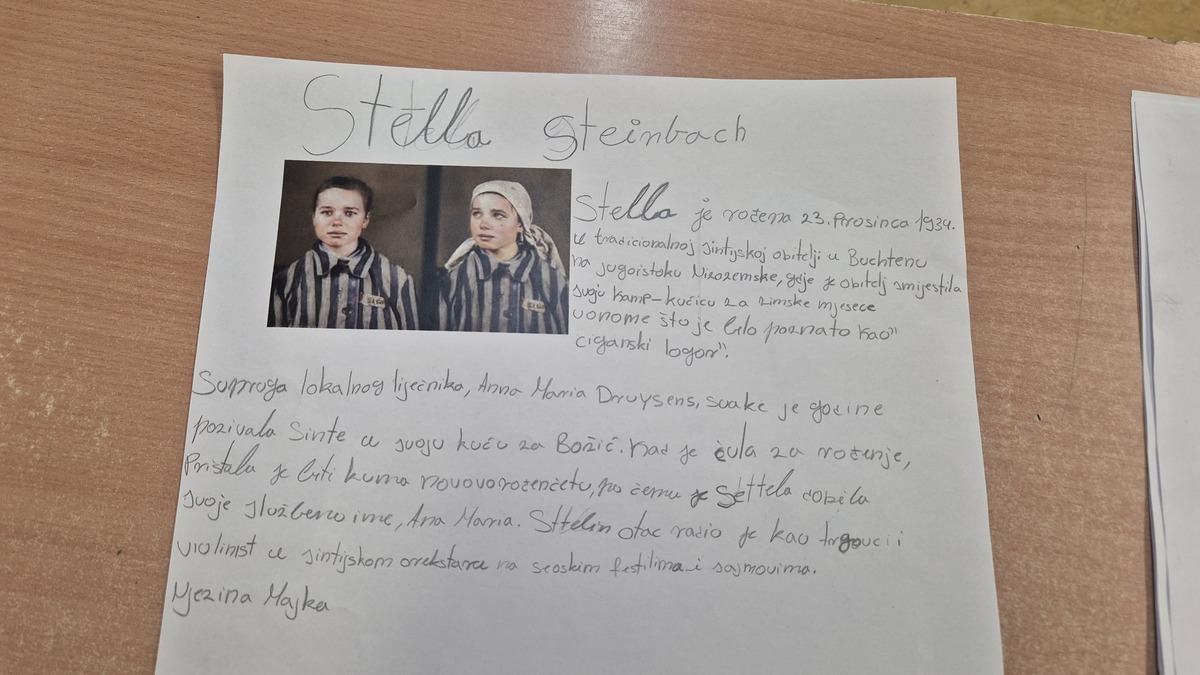 Stella Steinbach
Stella je rođena 23. Prosinca 1934.
u tradicionalnoj sintijskoj obitelji u Buchtenu
na jugoistoku Nizozemske, gdje je obitelj smijestila
svoju kamp-kućicu za zimske mjesece
uonome što je bilo poznato kao"
ciganski logor".
Supruga lokalnog liječnika, Anna Maria Druysens, svake je godine
pozivala Sinte u svoju kuću za Božić. Kad je čula za rođenje,
Pristala je biti kuma novovorođenčetu, po čemu je Settela dobila
svoje službeno ime, Ana Maria. Sttelin otac radio je kao trgovci i
violinist u sintijskom orekstaru na seoskim festilima i sajmovima.
Njezina Majka